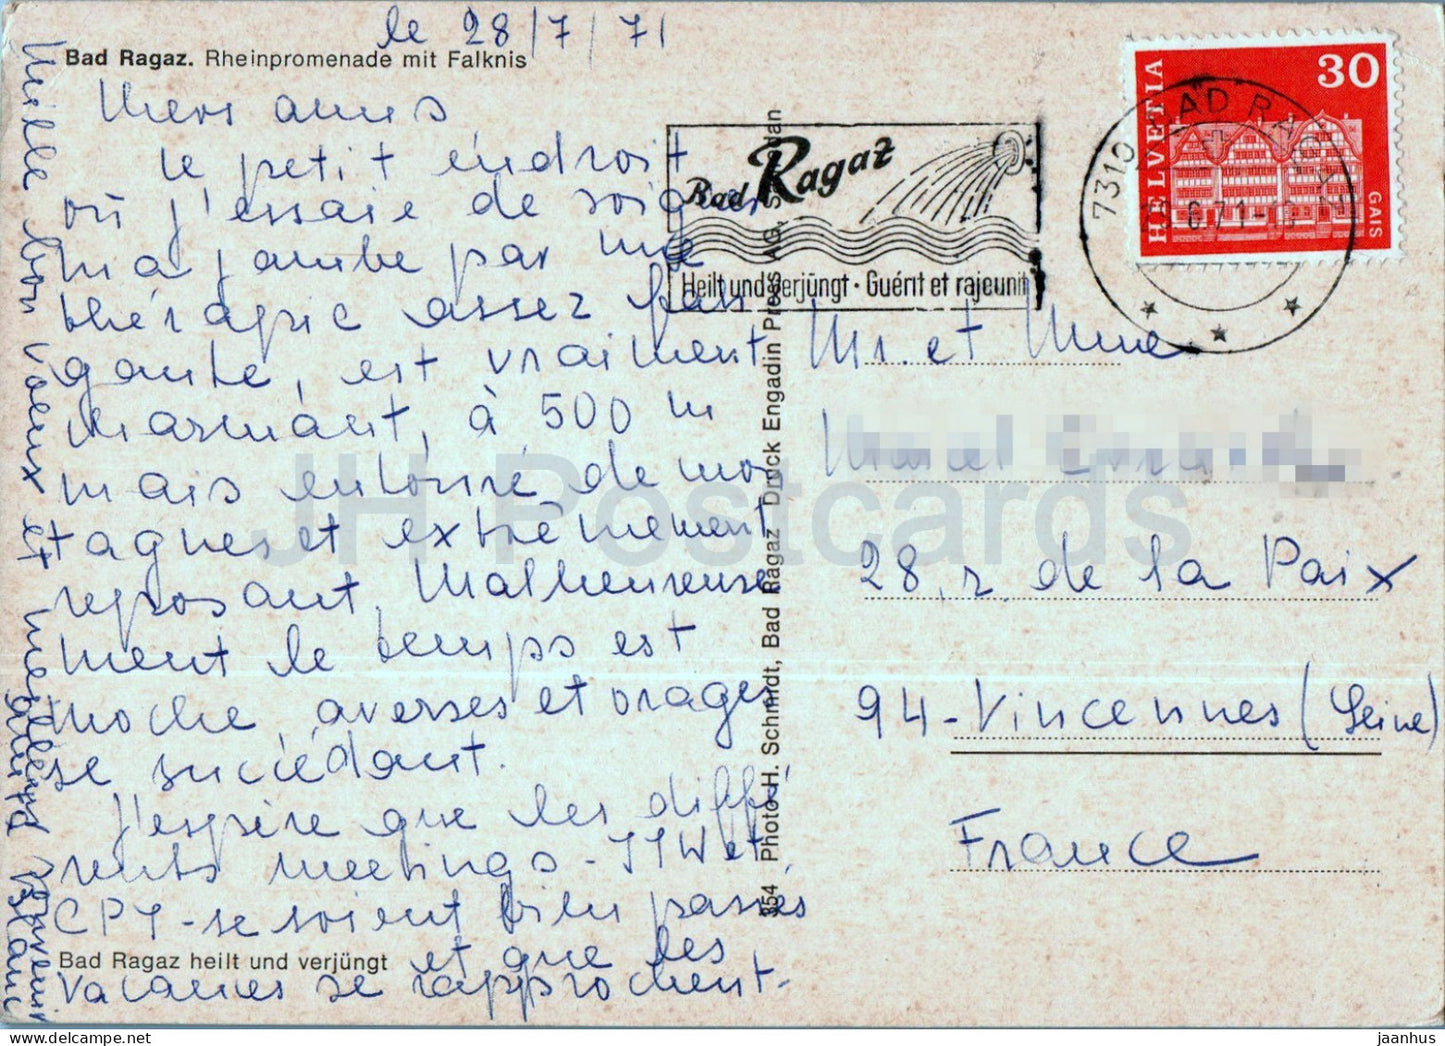 le 28/7/71
Bad Ragaz. Rheinpromenade mit Falknis
Chers amis
Le petit endroit
où j'essaie de soigner
ma jambe par une
thérapie assez fati
gante, est vraiment
charmant, à 500 m
mais entouré de mon
tagnes et extrêmement
reposant. Malheureuse
ment le temps est
moche, averses et orages
se succédant.
J'espère que les diffé
rents meetings - JJW et
CPJ - se soient bien passés
et que les
vacances se rapprochent.
Bad Ragaz heilt und verjüngt
Mille bons voeux et
354 Photo-H. Schmidt, Bad Ragaz Druck Engadin Press AG, Samedan
Bad Ragaz
Heilt und verjüngt · Guérit et rajeunit
7310 BAD RAGAZ
HELVETIA
30
GAIS
Mr. et Mme
Marcel
28, r. de la Paix
94 - Vincennes (Seine)
France
JH Postcards
jaanhus @ delcampe.net